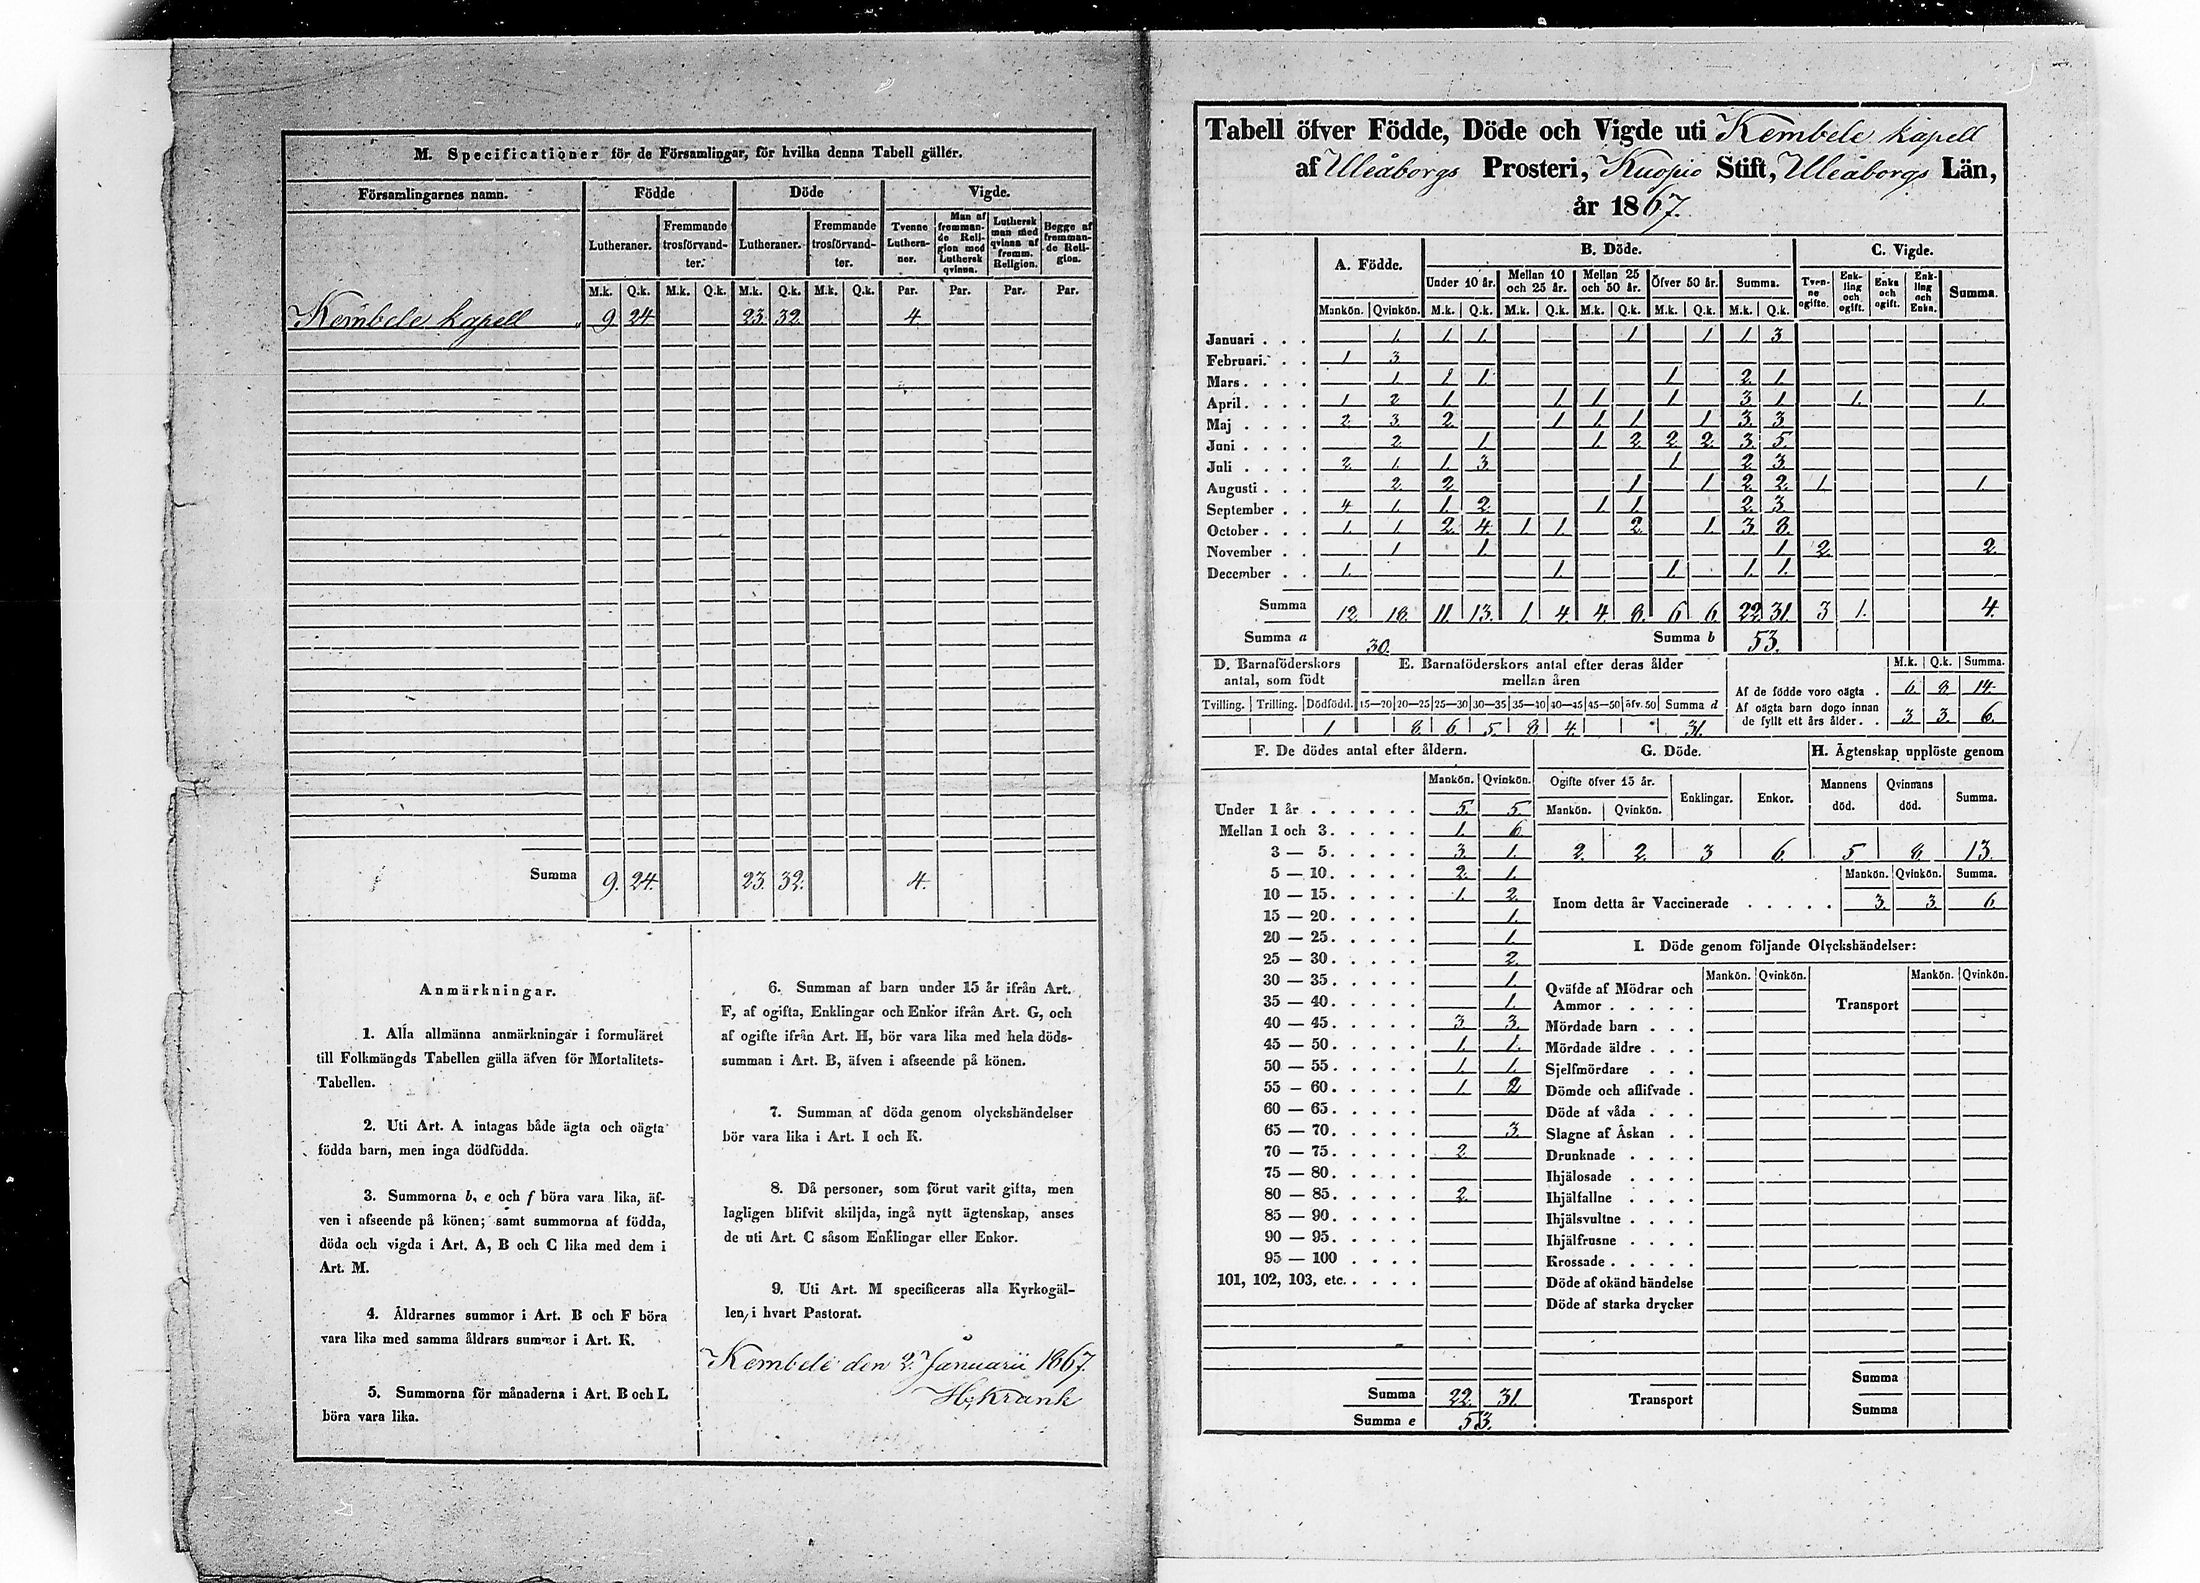 M. Specificationer för de Församlingar, för hvilka denna Tabell gäller.
Församlingarnes namn. Födde Döde Vigde.
Lutheraner. Fremmande trosförvandter. Lutheraner. Fremmande trosförvandter. Tvenne Lutheraner. Man af fremmande Religion med Luthersk qvinna. Luthersk man med qvinna af fremm. Religion. Begge af fremmande Religion.
M.k. Q.k. M.k. Q.k. M.k. Q.k. M.k. Q.k. Par. Par. Par. Par.
Kembele kapell 9. 24. 23. 32. 4.
Summa 9. 24. 23. 32. 4.
Anmärkningar.
1. Alla allmänna anmärkningar i formuläret
till Folkmängds Tabellen gälla äfven för Mortalitets-
Tabellen.
2. Uti Art. A intagas både ägta och oägta
födda barn, men inga dödfödda.
3. Summorna b, e och f böra vara lika, äf-
ven i afseende på könen; samt summorna af födda,
döda och vigda i Art. A, B och C lika med dem i
Art. M.
4. Åldrarnes summor i Art. B och F böra
vara lika med samma åldrars summor i Art. K.
5. Summorna för månaderna i Art. B och L
böra vara lika.
6. Summan af barn under 15 år ifrån Art.
F, af ogifta, Enklingar och Enkor ifrån Art. G, och
af ogifte ifrån Art. H, bör vara lika med hela döds-
summan i Art. B, äfven i afseende på könen.
7. Summan af döda genom olyckshändelser
bör vara lika i Art. I och K.
8. Då personer, som förut varit gifta, men
lagligen blifvit skiljda, ingå nytt ägtenskap, anses
de uti Art. C såsom Enklingar eller Enkor.
9. Uti Art. M specificeras alla Kyrkogäl-
len, i hvart Pastorat.
Kembele den 2. Januarii 1867.
H. Krank
Tabell öfver Födde, Döde och Vigde uti Kembele kapell
af Uleåborgs Prosteri, Kuopio Stift, Uleåborgs Län,
år 1867.
A. Födde. B. Döde. C. Vigde.
Under 10 år. Mellan 10 och 25 år. Mellan 25 och 50 år. Öfver 50 år. Summa. Tvenne ogifte. Enkling och ogift. Enka och ogift. Enkling och Enka. Summa.
Mankön. Qvinkön. M.k. Q.k. M.k. Q.k. M.k. Q.k. M.k. Q.k. M.k. Q.k.
Januari . . . 1. 1. 1. 1 1 1 3
Februari. . . 1 3
Mars . . . . 1 1 1. 1 2. 1.
April. . . . 1 2 1. 1 1 1 3 1 1. 1.
Maj . . . . 2 3. 2. 1 1. 1 1 3. 3
Juni . . . . 2 1. 1. 2 2 2. 3 5.
Juli . . . . 2. 1. 1. 3 1 2 3
Augusti . . . 2 2 1 1. 2 2. 1. 1.
September . . 4 1. 1. 2 1 1. 2 3
October . . . 1. 1. 2 4. 1 1. 2. 1. 3 8.
November . . 1 1. 1. 2. 2.
December . . 1. 1. 1. 1. 1.
Summa 12. 18. 11. 13. 1. 4. 4. 8. 6 6. 22. 31. 3 1. 4.
Summa a 30. Summa b 53.
D. Barnaföderskors antal, som födt
Tvilling. Trilling. Dödfödd.
1
E. Barnaföderskors antal efter deras ålder mellan åren
15—20 20—25 25—30 30—35 35—40 40—45 45—50 öfv. 50 Summa d
8. 6. 5. 8. 4. 31.
M.k. Q.k. Summa.
Af de födde voro oägta . 6. 8 14.
Af oägta barn dogo innan
de fyllt ett års ålder. . 3. 3. 6.
F. De dödes antal efter åldern.
Mankön. Qvinkön.
Under 1 år . . . . . . 5. 5.
Mellan 1 och 3. . . . . 1. 6.
3 — 5. . . . . 3. 1.
5 — 10. . . . . 2. 1.
10 — 15. . . . . 1. 2.
15 — 20. . . . . 1.
20 — 25. . . . . 1.
25 — 30. . . . . 2.
30 — 35. . . . . 1.
35 — 40. . . . . 1.
40 — 45. . . . . 3. 3.
45 — 50. . . . . 1. 1.
50 — 55. . . . . 1. 1.
55 — 60. . . . . 1. 2
60 — 65. . . . .
65 — 70. . . . . 3.
70 — 75. . . . . 2.
75 — 80. . . . .
80 — 85. . . . . 2.
85 — 90. . . . .
90 — 95. . . . .
95 — 100 . . . .
101, 102, 103, etc. . . . .
Summa 22. 31.
Summa e 53.
G. Döde.
Ogifte öfver 15 år. Enklingar. Enkor.
Mankön. Qvinkön.
2. 2. 3 6.
H. Ägtenskap upplöste genom
Mannens död. Qvinnans död. Summa.
5 8. 13.
Mankön. Qvinkön. Summa.
Inom detta år Vaccinerade . . . . . 3. 3. 6.
I. Döde genom följande Olyckshändelser:
Mankön. Qvinkön. Mankön. Qvinkön.
Qväfde af Mödrar och
Ammor . . . . . Transport
Mördade barn . . .
Mördade äldre . . .
Sjelfmördare . . .
Dömde och aflifvade .
Döde af våda . . .
Slagne af Åskan . .
Drunknade . . . .
Ihjälosade . . . .
Ihjälfallne . . . .
Ihjälsvultne . . . .
Ihjälfrusne . . . .
Krossade . . . . .
Döde af okänd händelse
Döde af starka drycker
Summa
Transport Summa